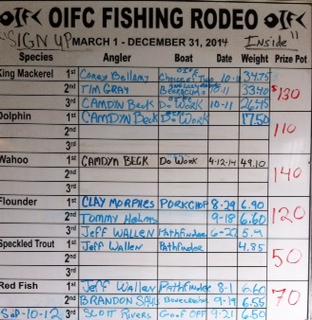 OIFC FISHING RODEO OIFC
"SIGN UP MARCH 1 - DECEMBER 31, 2014 Inside"
Species Angler Boat Date Weight Prize Pot
King Mackerel 1st Corey Bellamy OIFC 10-11 34.75 $130
2nd TIM GRAY 10-11 33.40
3rd CAMDYN BecK Do WorK 10-11 26.45
Dolphin 1st CAMDYN BecK Do WorK 17.50 110
2nd
3rd
Wahoo 1st CAMDYN BECK Do WorK 4-12-14 49.10 140
2nd
3rd
Flounder 1st CLAY MORPHES PORKCHOP 8-29 6.90 120
2nd Tommy 9-18 6.60
3rd Jeff WALLEN Pathfinder 6-22 5.4
Speckled Trout 1st Jeff Wallen Pathfinder 4.85 50
2nd
3rd
Red Fish 1st Jeff Wallen Pathfinder 8-1 6.60 70
2nd BRANDON 9-19 6.55
Sep-10-12 3rd Scott Rivers Goof OFF 9-21 6.50